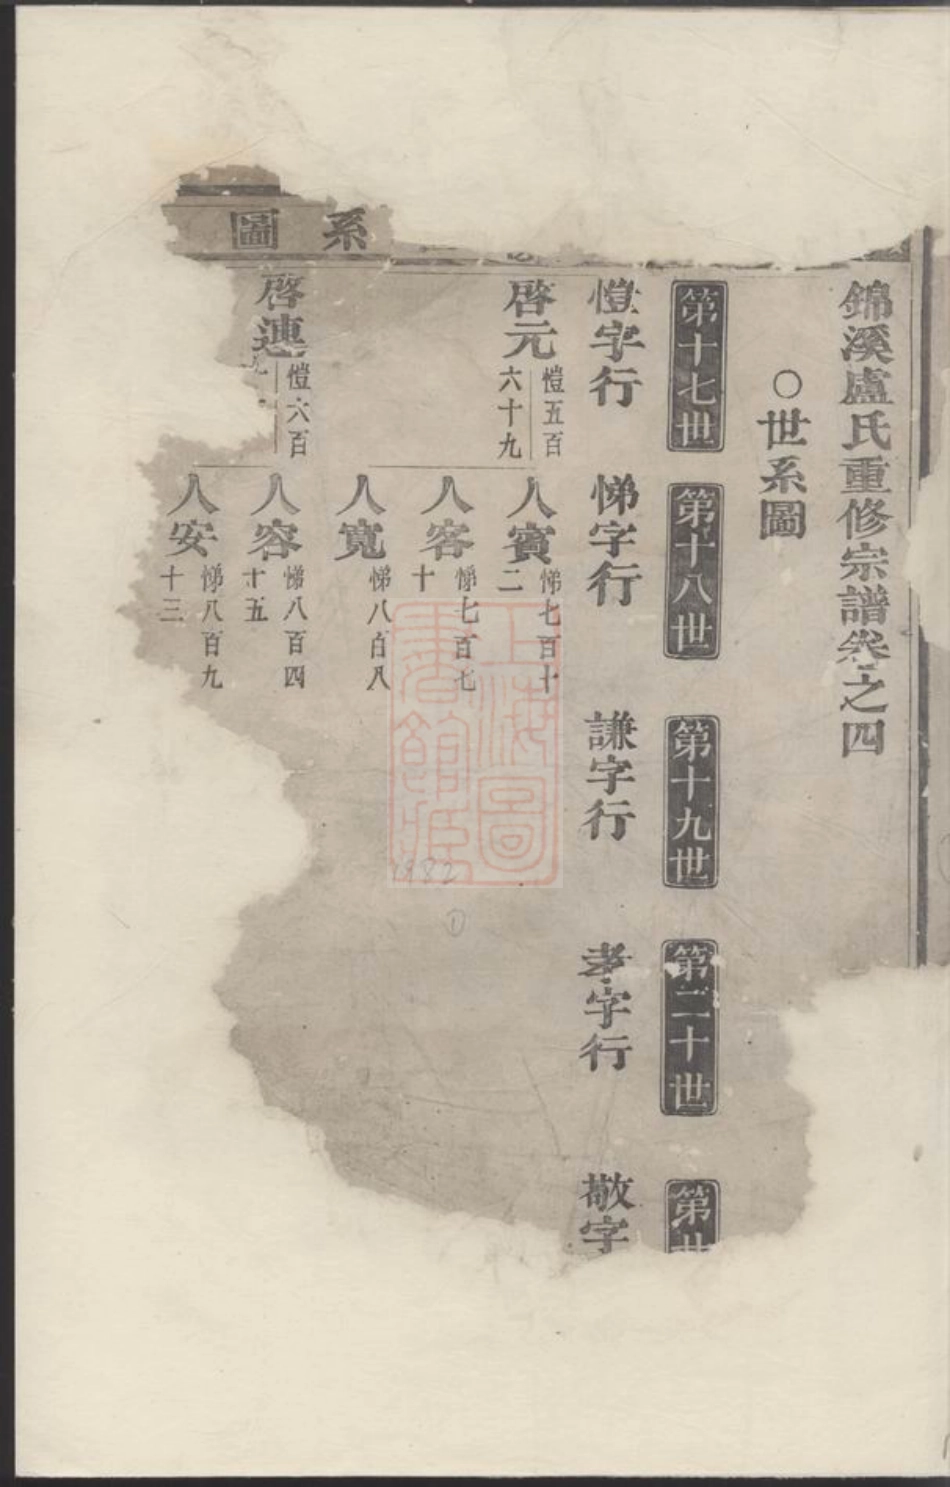 錦溪盧氏重修宗譜卷之四
○世系圖
第十七世
第十八世
第十九世
第二十世
第廿
愷字行
悌字行
謙字行
孝字行
敬字
系圖
啓元 愷五百六十九
人賓 悌七百十二
人客 悌七百七十
人寬 悌八百八
啓連 愷六百九
人容 悌八百四十五
人安 悌八百九十三
上海圖書館藏
1982
①